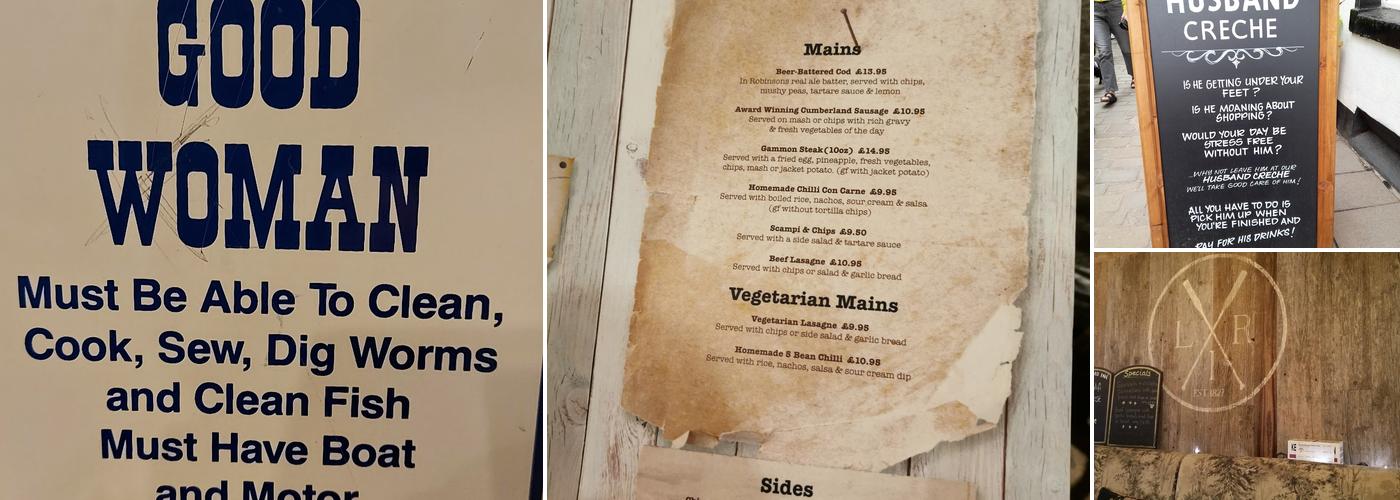 GOOD
WOMAN
Must Be Able To Clean,
Cook, Sew, Dig Worms
and Clean Fish
Must Have Boat
and Motor
Mains
Beer-Battered Cod £13.95
In Robinsons real ale batter, served with chips,
mushy peas, tartare sauce & lemon
Award Winning Cumberland Sausage £10.95
Served on mash or chips with rich gravy
& fresh vegetables of the day
Gammon Steak(10oz) £14.95
Served with a fried egg, pineapple, fresh vegetables,
chips, mash or jacket potato. (gf with jacket potato)
Homemade Chilli Con Carne £9.95
Served with boiled rice, nachos, sour cream & salsa
(gf without tortilla chips)
Scampi & Chips £9.50
Served with a side salad & tartare sauce
Beef Lasagne £10.95
Served with chips or salad & garlic bread
Vegetarian Mains
Vegetarian Lasagne £9.95
Served with chips or side salad & garlic bread
Homemade 5 Bean Chilli £10.95
Served with rice, nachos, salsa & sour cream dip
Sides
HUSBAND
CRECHE
IS HE GETTING UNDER YOUR
FEET?
IS HE MOANING ABOUT
SHOPPING?
WOULD YOUR DAY BE
STRESS FREE
WITHOUT HIM?
...WHY NOT LEAVE HIM AT OUR
HUSBAND CRECHE
WE'LL TAKE GOOD CARE OF HIM!
ALL YOU HAVE TO DO IS
PICK HIM UP WHEN
YOU'RE FINISHED AND
PAY FOR HIS DRINKS!
L R
I
EST 1827
Specials